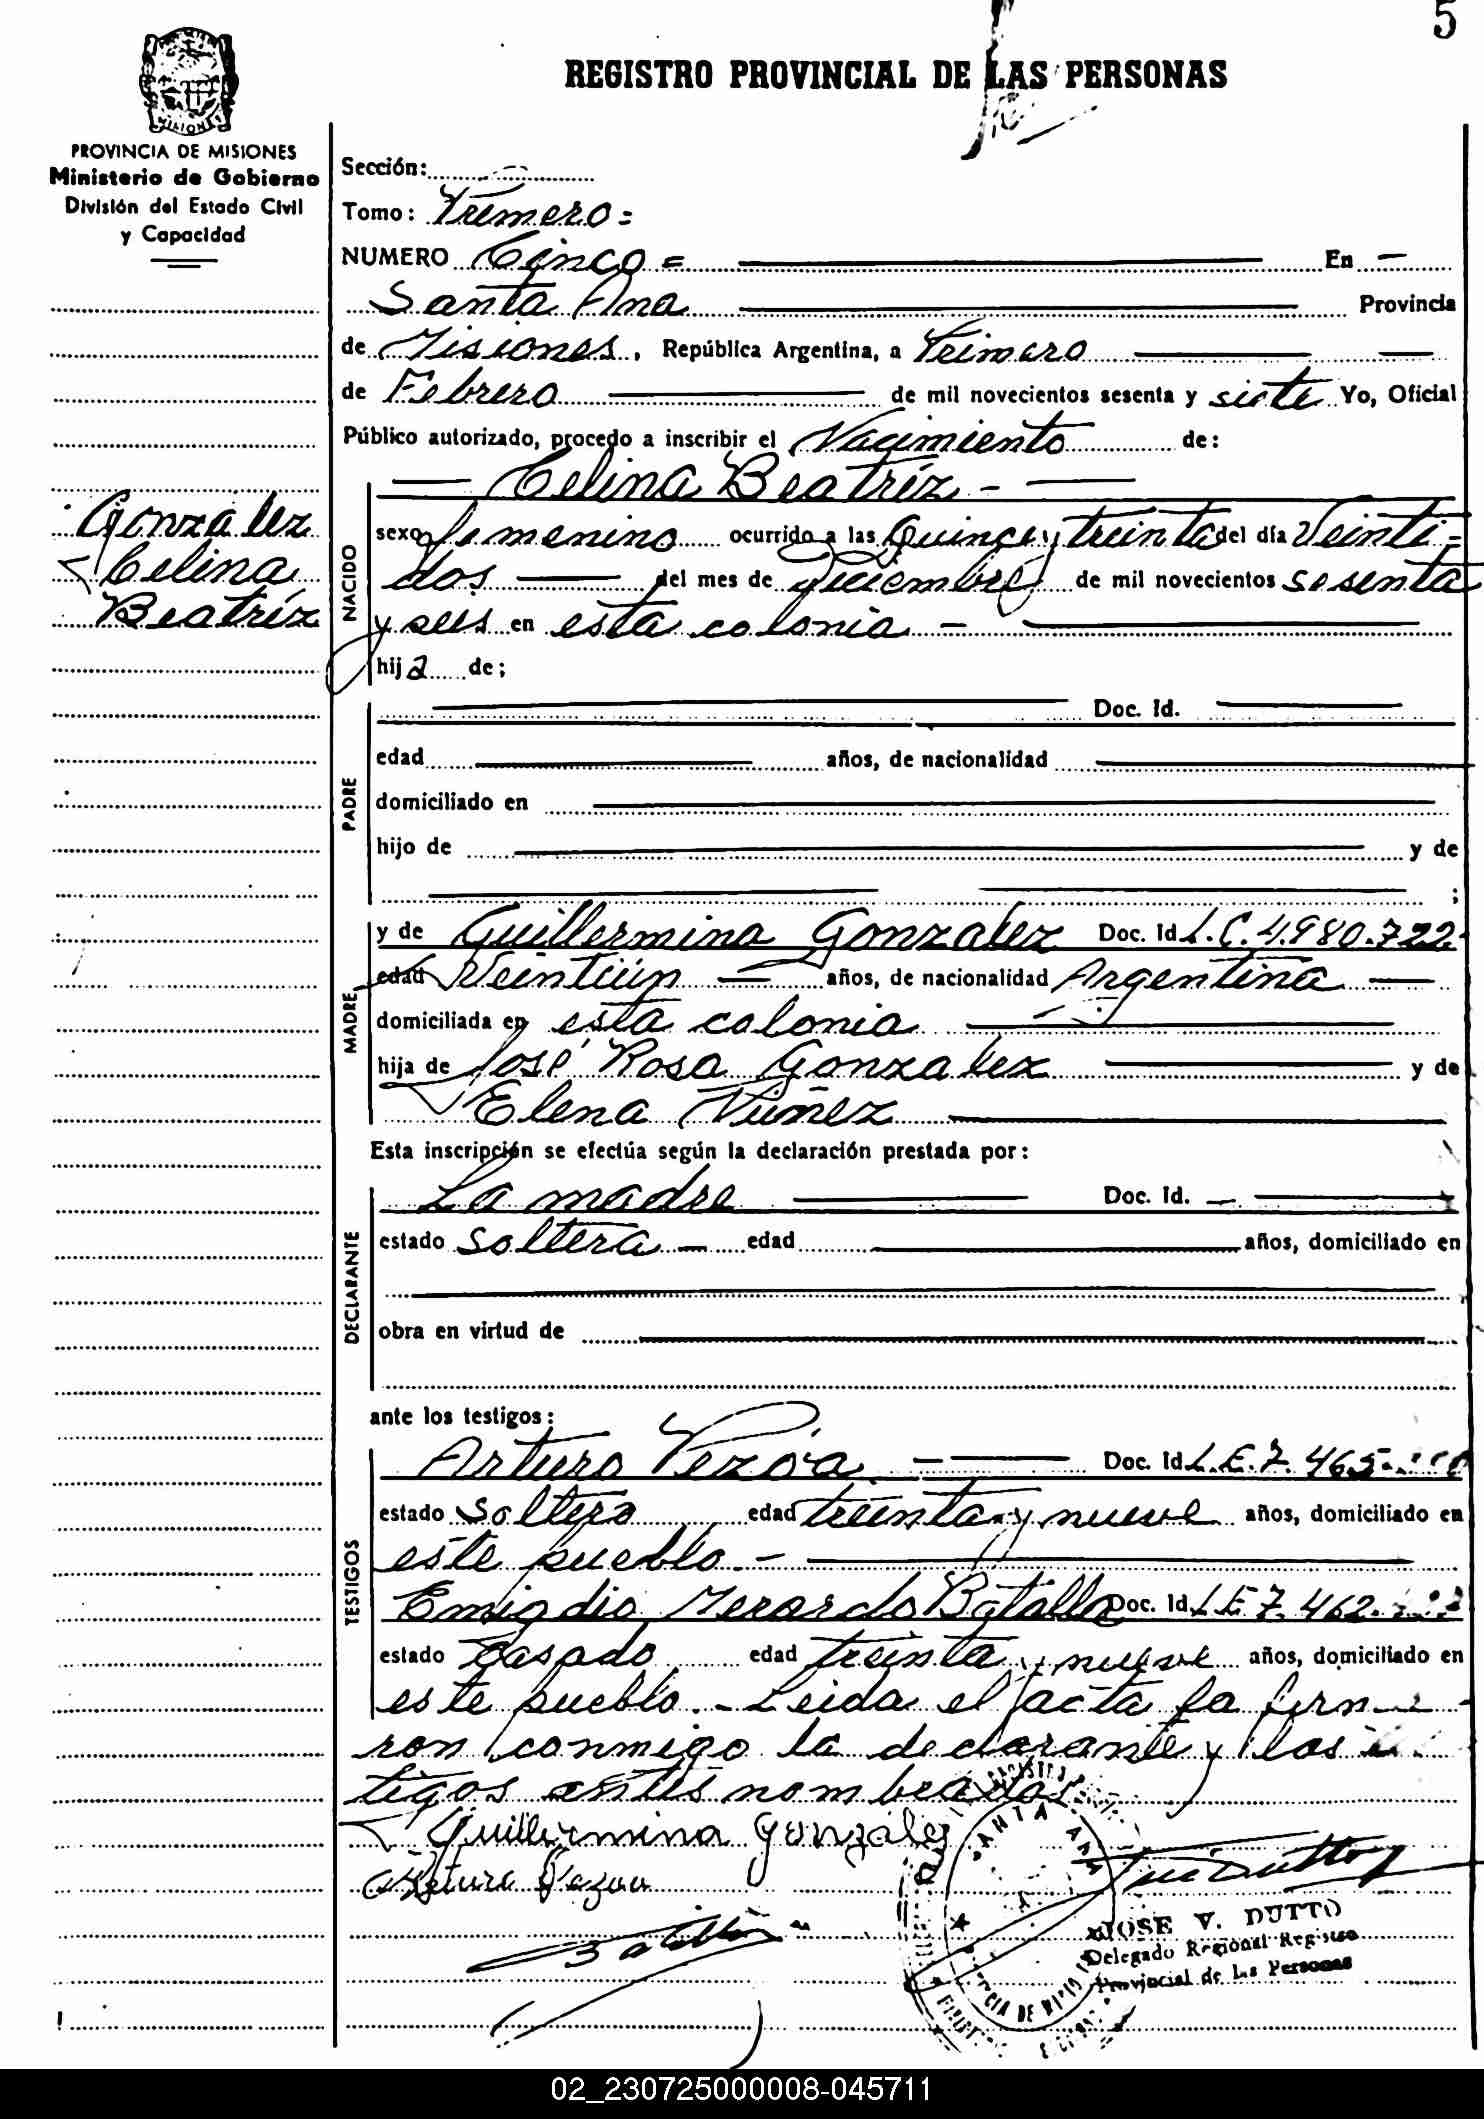 5
REGISTRO PROVINCIAL DE LAS PERSONAS
MISIONES
PROVINCIA DE MISIONES
Ministerio de Gobierno
División del Estado Civil
y Capacidad
Sección:
Tomo: Primero=
NUMERO Cinco = En
Santa Ana Provincia
de Misiones, República Argentina, a Primero
de Febrero de mil novecientos sesenta y siete Yo, Oficial
Público autorizado, procedo a inscribir el Nacimiento de:
Gonzalez
Celina
Beatríz
NACIDO
Celina Beatríz
sexo femenino ocurrido a las Quince y treinta del día Veinti=
dos del mes de Diciembre de mil novecientos sesenta
y seis en esta colonia
hija de;
PADRE
Doc. Id.
edad años, de nacionalidad
domiciliado en
hijo de y de
;
MADRE
y de Guillermina Gonzalez Doc. Id L.C. 4.980.722
edad Veintiún años, de nacionalidad Argentina
domiciliada en esta colonia
hija de José Rosa Gonzalez y de
Elena Nuñez
Esta inscripción se efectúa según la declaración prestada por:
DECLARANTE
La madre Doc. Id.
estado soltera edad años, domiciliado en
obra en virtud de
ante los testigos:
TESTIGOS
Arturo Pezóa Doc. Id L.E. 7.465.
estado soltero edad treinta y nueve años, domiciliado en
este pueblo.-
Emigdio Batalla Doc. Id L.E 7.462.
estado casado edad treinta y nueve años, domiciliado en
este pueblo.- Leida el acta la firma
ron conmigo la declarante y los
tigos antes nombrados
Guillermina Gonzalez
Arturo Pezoa
Batalla
SANTA ANA
JOSE V. DUTTO
Delegado Regional Registro
Provincial de las Personas
02_230725000008-045711